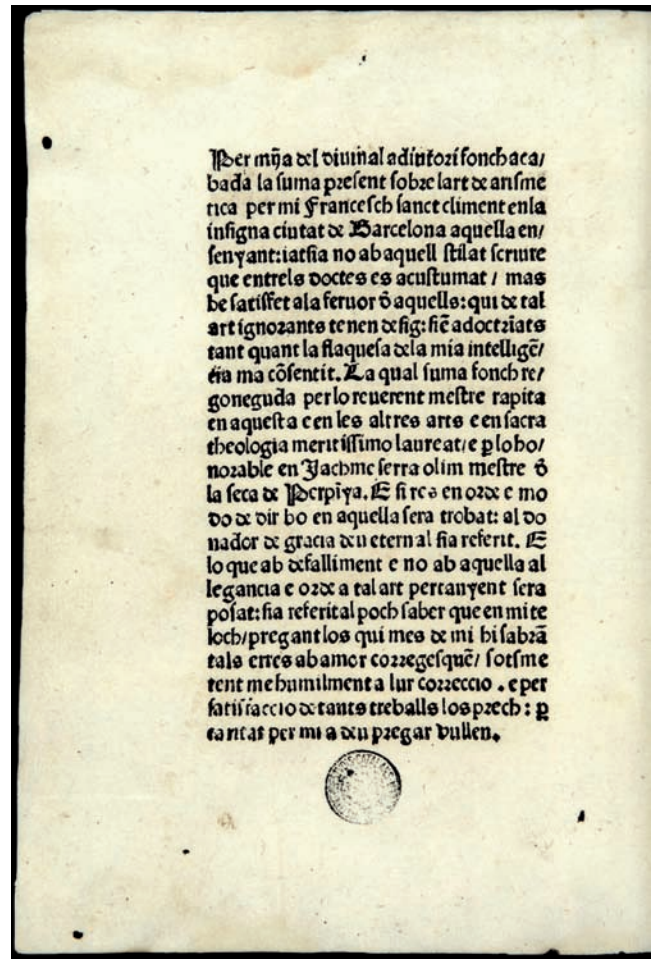 Per mỹa del diuinal adiutori fonch aca/
bada la suma present sobre lart de arisme
tica per mi Francesch sanct climent en la
insigna ciutat de Barcelona aquella en/
senyant: iatsia no ab aquell stilat scriure
que entrels doctes es acustumat / mas
be satisfet ala feruor đ aquells: qui de tal
art ignorants tenen desig: siē adoctriats
tant quant la flaquesa dela mia intelligē/
cia ma cōsentit. La qual suma fonch re/
goneguda per lo reuerent mestre rapita
en aquesta e en les altres arts e en sacra
theologia meritissimo laureat/e ꝑ lo ho/
norable en Jachme serra olim mestre đ
la seca de Perpīya. E si res en orde e mo
do de dir bo en aquella sera trobat: al do
nador de gracia deu eternal sia referit. E
lo que ab defalliment e no ab aquella al
legancia e orde a tal art pertanyent sera
posat: sia referit al poch saber que en mi te
loch/pregant los qui mes de mi hi sabrā
tals erres ab amor corregesquē/ sotsme
tent me humilment a lur correccio . e per
satisfaccio de tants treballs los prech: ꝑ
caritat per mi a deu pregar vullen.